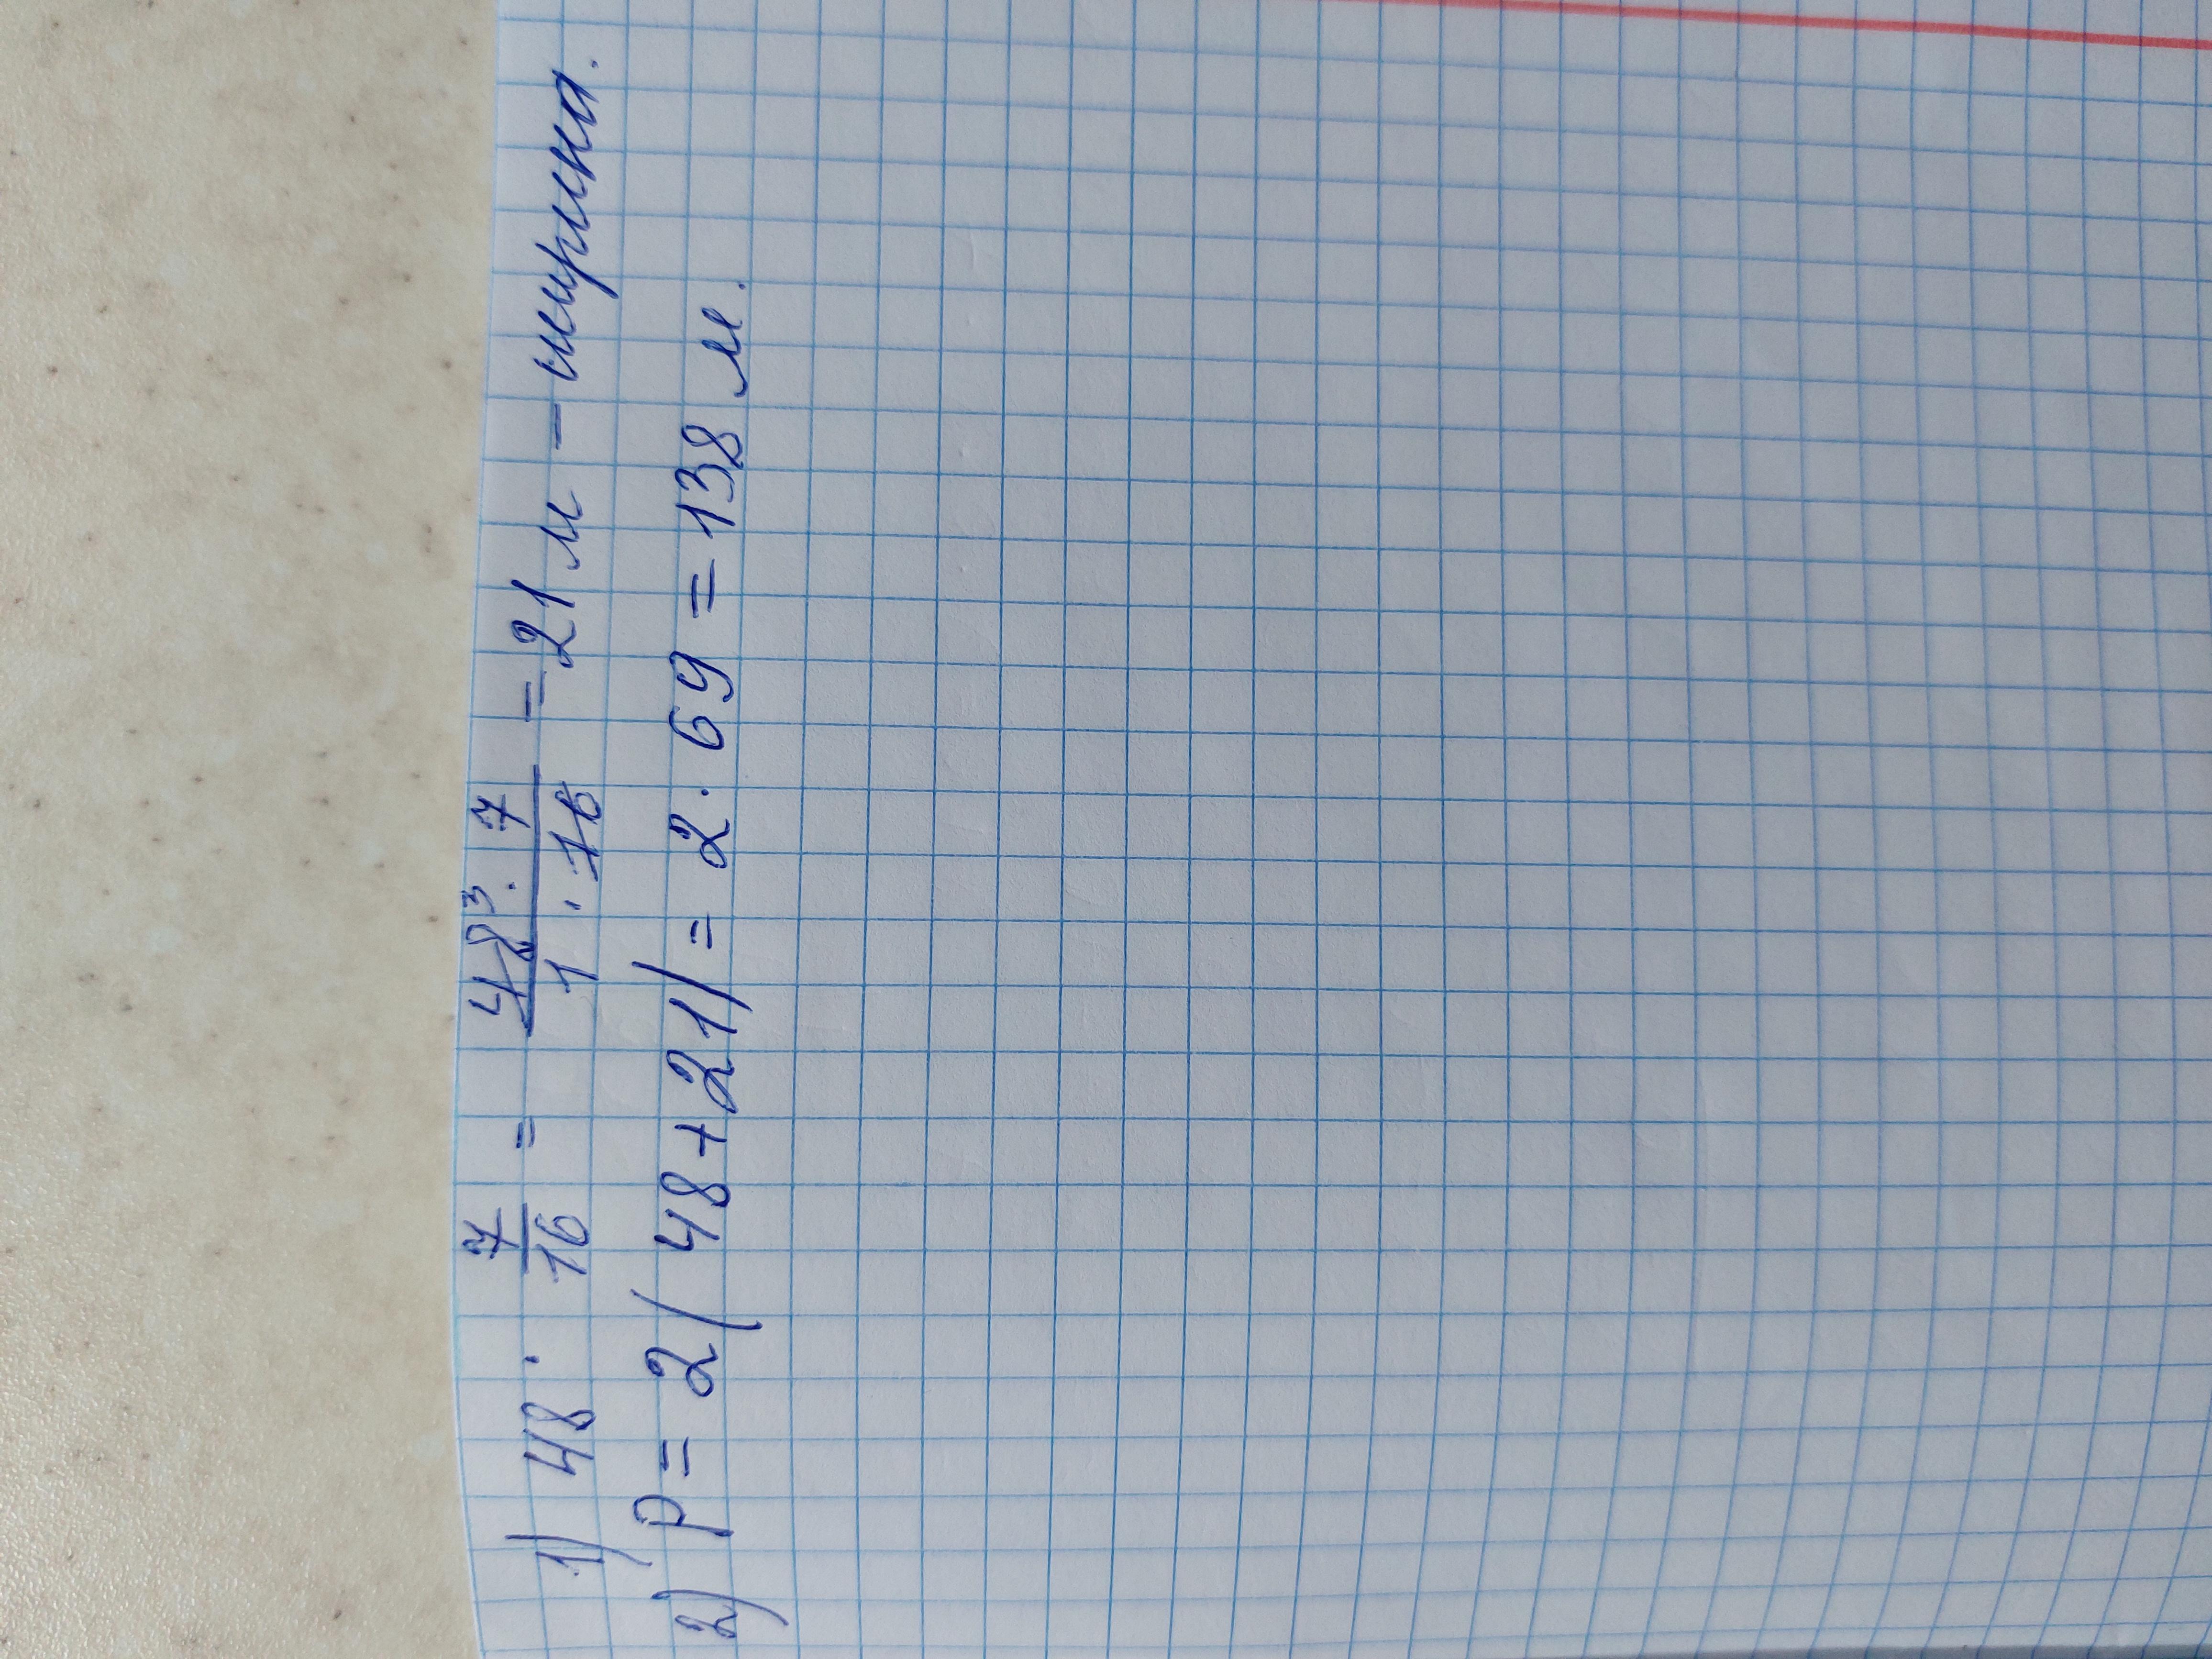 1) 48 · 7/16 = 48³ · 7 / 1 · 16 = 21 м – ширина.
2) P = 2(48+21) = 2 · 69 = 138 м.